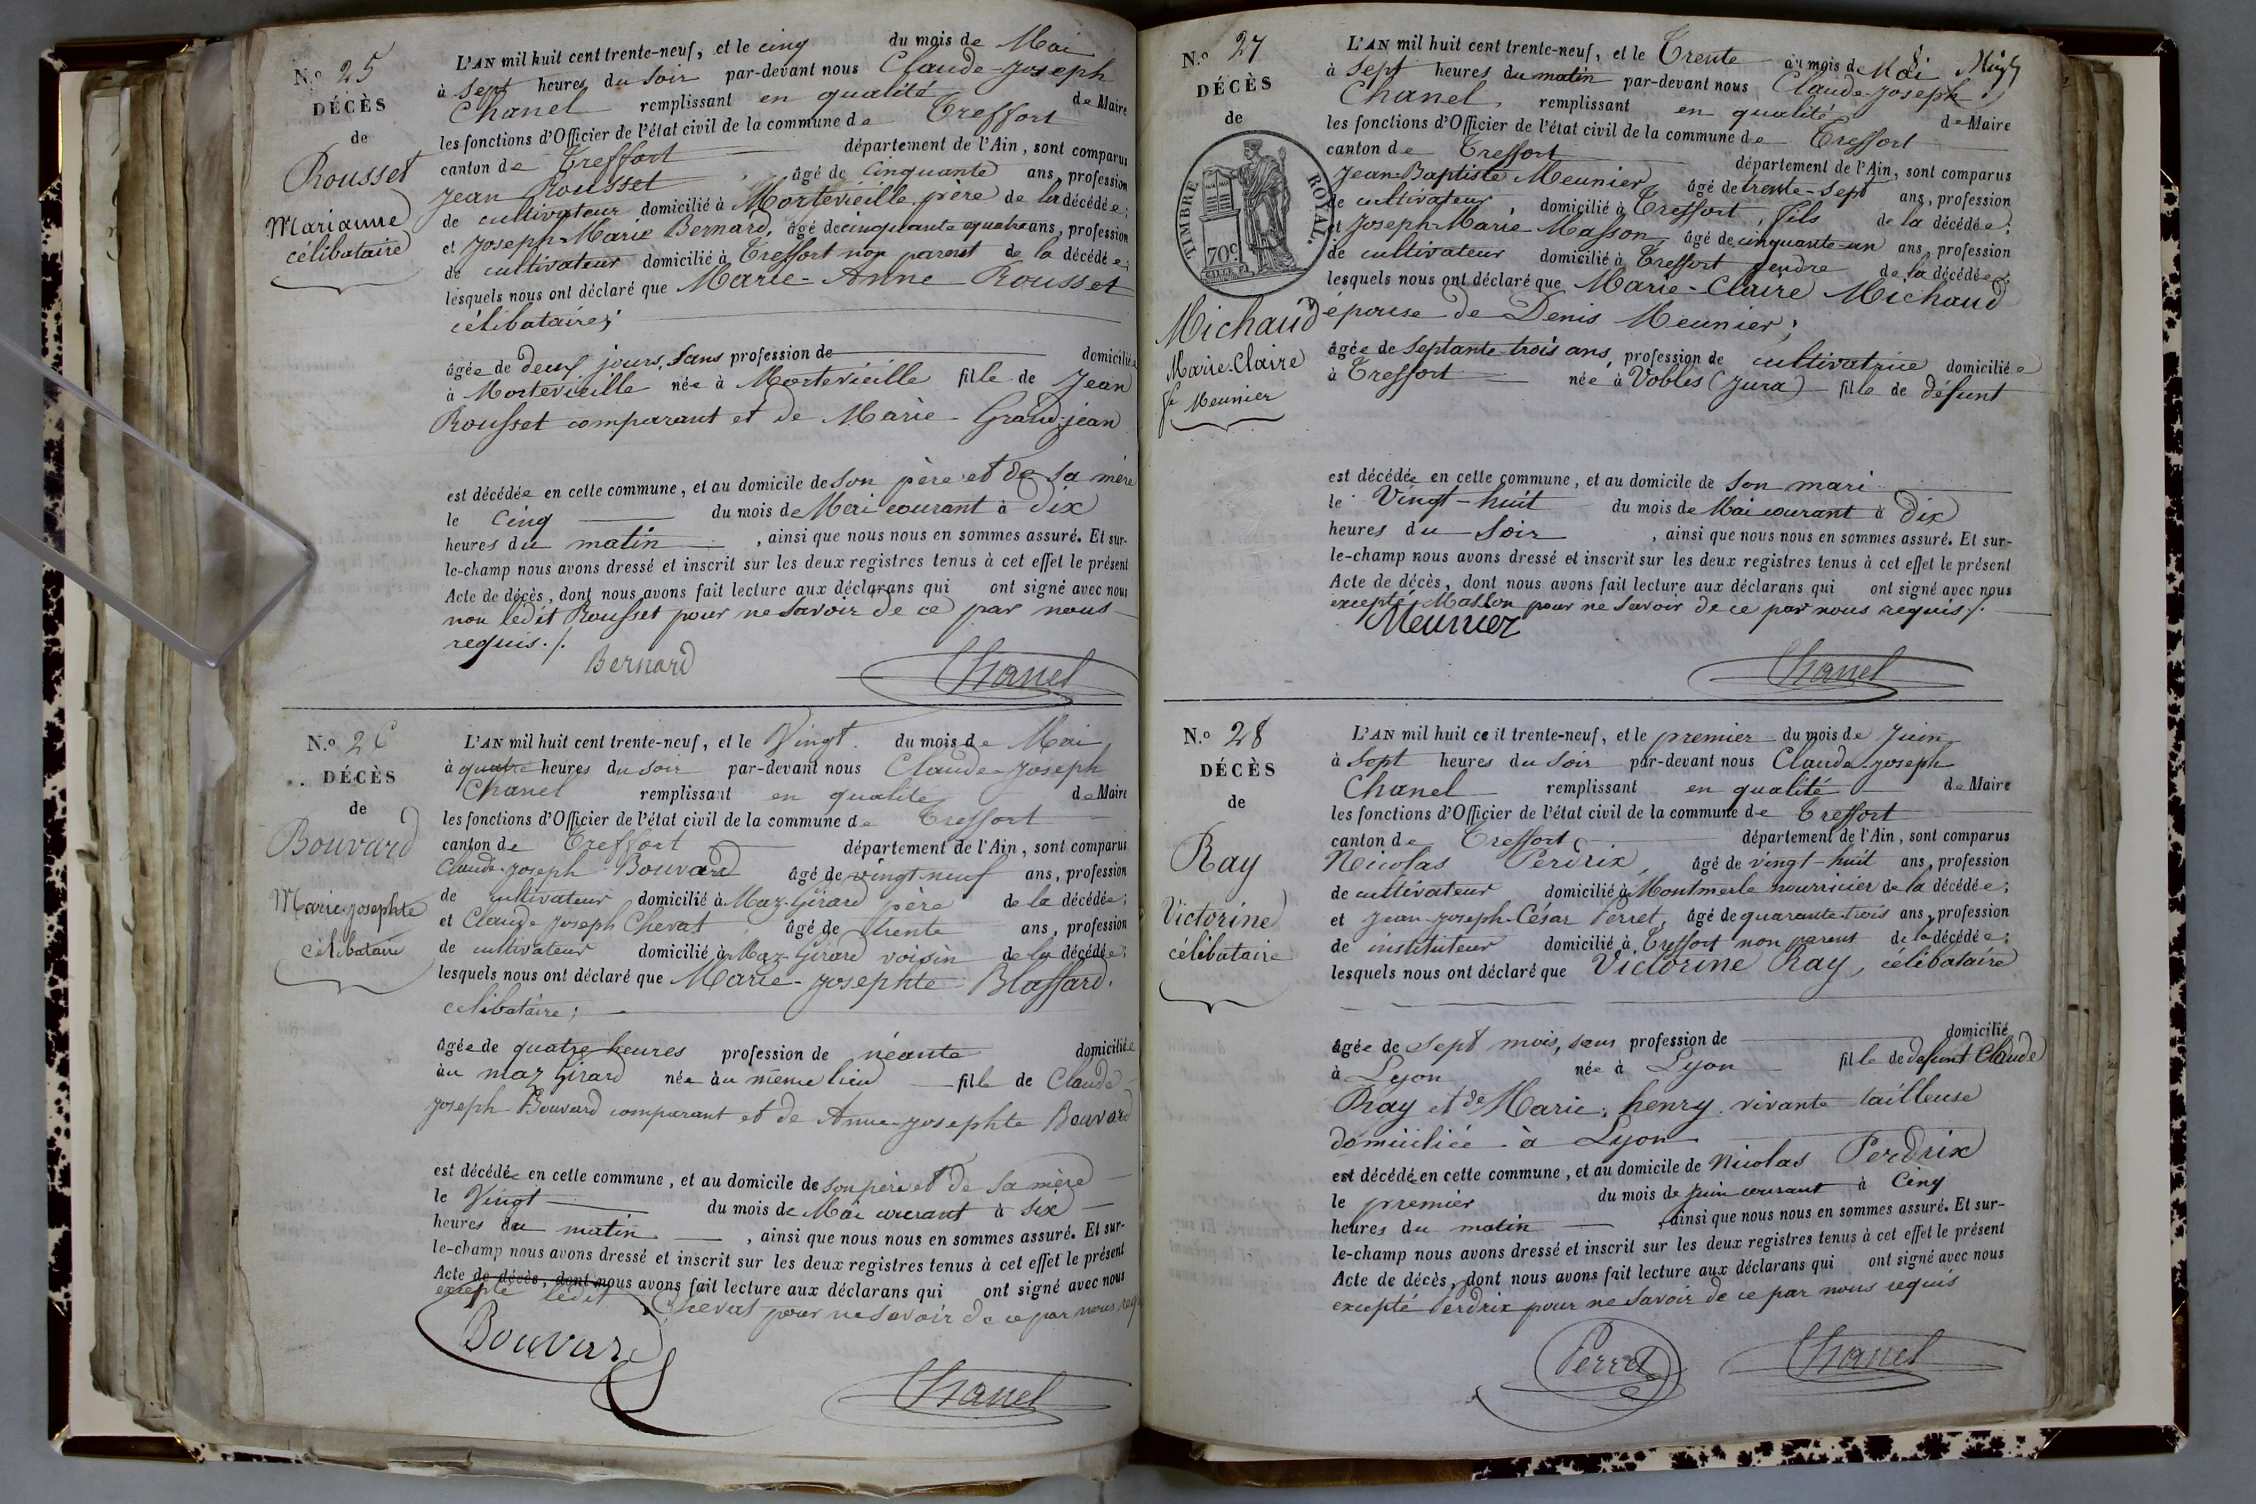 N.o 25
DÉCÈS
de
Rousset
Marianne
célibataire
L'AN mil huit cent trente-neuf, et le cinq du mois de Mai
à sept heures du soir par-devant nous Claude-Joseph
Chanel remplissant en qualité de Maire
les fonctions d'Officier de l'état civil de la commune de Treffort
canton de Treffort département de l'Ain, sont comparus
Jean Rousset, âgé de Cinquante ans, profession
de cultivateur domicilié à Mortevieille père de la décédée;
et Joseph-Marie Bernard, âgé de cinquante quatre ans, profession
de cultivateur domicilié à Treffort non parent de la décédée;
lesquels nous ont déclaré que Marie-Anne Rousset
célibataire;
âgée de deux jours, sans profession de domiciliée
à Mortevieille née à Mortevieille fille de Jean
Rousset comparant et de Marie-Grandjean
est décédée en cette commune, et au domicile de son père et de sa mère
le Cinq du mois de Mai courant à Dix
heures du matin, ainsi que nous nous en sommes assuré. Et sur-
le-champ nous avons dressé et inscrit sur les deux registres tenus à cet effet le présent
Acte de décès, dont nous avons fait lecture aux déclarans qui ont signé avec nous
non ledit Rousset pour ne savoir de ce par nous
requis./.
Bernard Chanel
N.o 26
DÉCÈS
de
Bouvard
Marie-Josephte
célibataire
L'AN mil huit cent trente-neuf, et le Vingt du mois de Mai
à quatre heures du soir par-devant nous Claude-Joseph
Chanel remplissant en qualité de Maire
les fonctions d'Officier de l'état civil de la commune de Treffort
canton de Treffort département de l'Ain, sont comparus
Claude-Joseph Bouvard âgé de vingt neuf ans, profession
de cultivateur domicilié à Maz-Girard père de la décédée;
et Claude Joseph Chevat âgé de trente ans, profession
de cultivateur domicilié à Maz-Girard voisin de la décédée;
lesquels nous ont déclaré que Marie-Josephte Blaffard.
célibataire;
âgée de quatre heures profession de néante domiciliée
au maz Girard née au même lieu fille de Claude
Joseph Bouvard comparant et de Anne-Josephte Bouvard
est décédée en cette commune, et au domicile de son père et de sa mère
le Vingt du mois de Mai courant à six
heures du matin, ainsi que nous nous en sommes assuré. Et sur-
le-champ nous avons dressé et inscrit sur les deux registres tenus à cet effet le présent
Acte de décès, dont nous avons fait lecture aux déclarans qui ont signé avec nous
excepté ledit Chevat pour ne savoir de ce par nous req
Bouvard
Chanel
N.o 27
DÉCÈS
de
TIMBRE ROYAL.
70c.
Michaud
Marie-Claire
fe Meunier
L'AN mil huit cent trente-neuf, et le Trente du mois de Mai
à sept heures du matin par-devant nous Claude-Joseph
Chanel, remplissant en qualité de Maire
les fonctions d'Officier de l'état civil de la commune de Treffort
canton de Treffort département de l'Ain, sont comparus
Jean-Baptiste Meunier âgé de trente-sept ans, profession
de cultivateur, domicilié à Treffort, fils de la décédée;
et Joseph-Marie-Masson, âgé de cinquante-un ans, profession
de cultivateur domicilié à Treffort gendre de la décédée;
lesquels nous ont déclaré que Marie-Claire Michaud
épouse de Denis Meunier;
âgée de septante-trois ans, profession de cultivatrice domiciliée
à Treffort née à Vobles (Jura) fille de défunt
est décédée en cette commune, et au domicile de son mari
le Vingt-huit du mois de Mai courant à Dix
heures du Soir, ainsi que nous nous en sommes assuré. Et sur-
le-champ nous avons dressé et inscrit sur les deux registres tenus à cet effet le présent
Acte de décès, dont nous avons fait lecture aux déclarans qui ont signé avec nous
excepté Masson pour ne savoir de ce par nous requis/.
Meunier
Chanel
N.o 28
DÉCÈS
de
Ray
Victorine
célibataire
L'AN mil huit ce it trente-neuf, et le premier du mois de Juin
à Sept heures du Soir par-devant nous Claude-Joseph
Chanel remplissant en qualité de Maire
les fonctions d'Officier de l'état civil de la commune de Treffort
canton de Treffort département de l'Ain, sont comparus
Nicolas Perdrix, âgé de vingt-huit ans, profession
de cultivateur domicilié à Montmerle nourricier de la décédée;
et Jean-Joseph-César Perret, âgé de quarante-trois ans, profession
de instituteur domicilié à Treffort non parent de la décédée;
lesquels nous ont déclaré que Victorine Ray, célibataire
âgée de sept mois, sans profession de domicilié
à Lyon née à Lyon fille de defunt Claude
Ray et de Marie henry vivante tailleuse
domiciliée à Lyon
est décédée en cette commune, et au domicile de Nicolas Perdrix
le premier du mois de juin courant à Cinq
heures du matin, ainsi que nous nous en sommes assuré. Et sur-
le-champ nous avons dressé et inscrit sur les deux registres tenus à cet effet le présent
Acte de décès, dont nous avons fait lecture aux déclarans qui ont signé avec nous
excepté Perdrix pour ne savoir de ce par nous requis
Perret Chanel